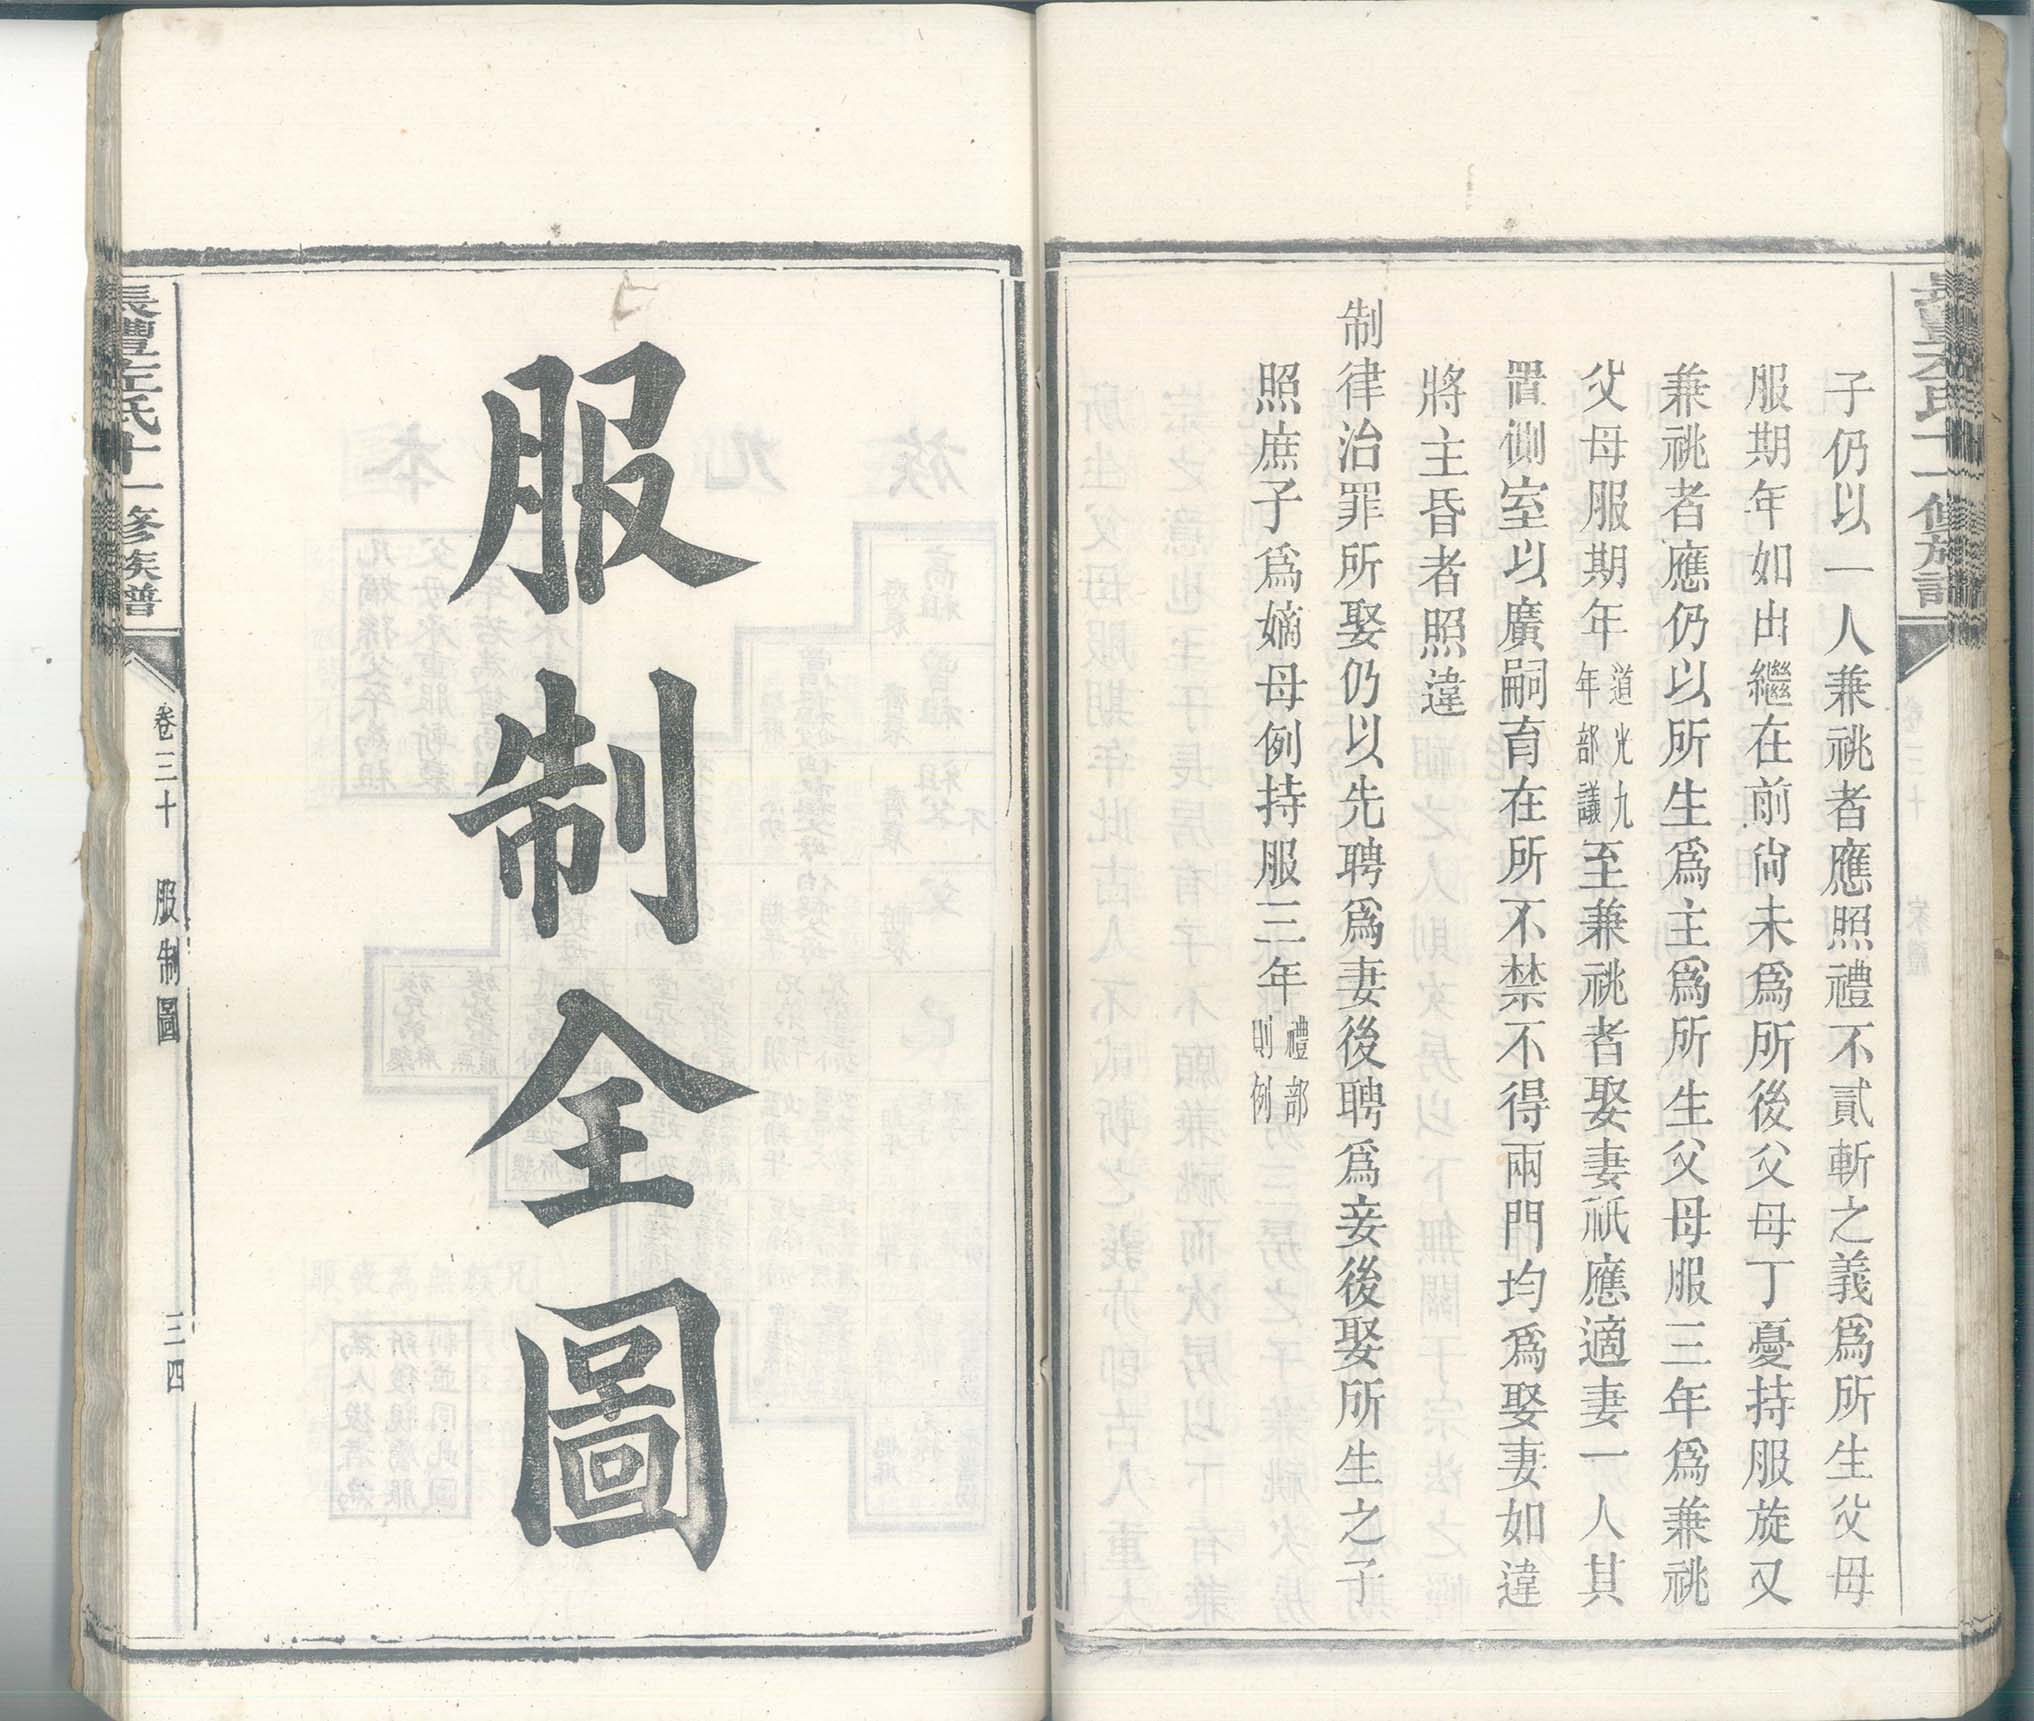 子仍以一人兼祧者應照禮不貳斬之義爲所生父母
服期年如出繼在前尙未爲所後父母丁憂持服旋又
兼祧者應仍以所生爲主爲所生父母服三年爲兼祧
父母服期年道光九年部議至兼祧者娶妻祇應適妻一人其
置側室以廣嗣育在所不禁不得兩門均爲娶妻如違
將主昏者照違
制律治罪所娶仍以先聘爲妻後聘爲妾後娶所生之子
照庶子爲嫡母例持服三年禮部則例
服制全圖
氏十一修族譜
卷三十
服制圖
三四